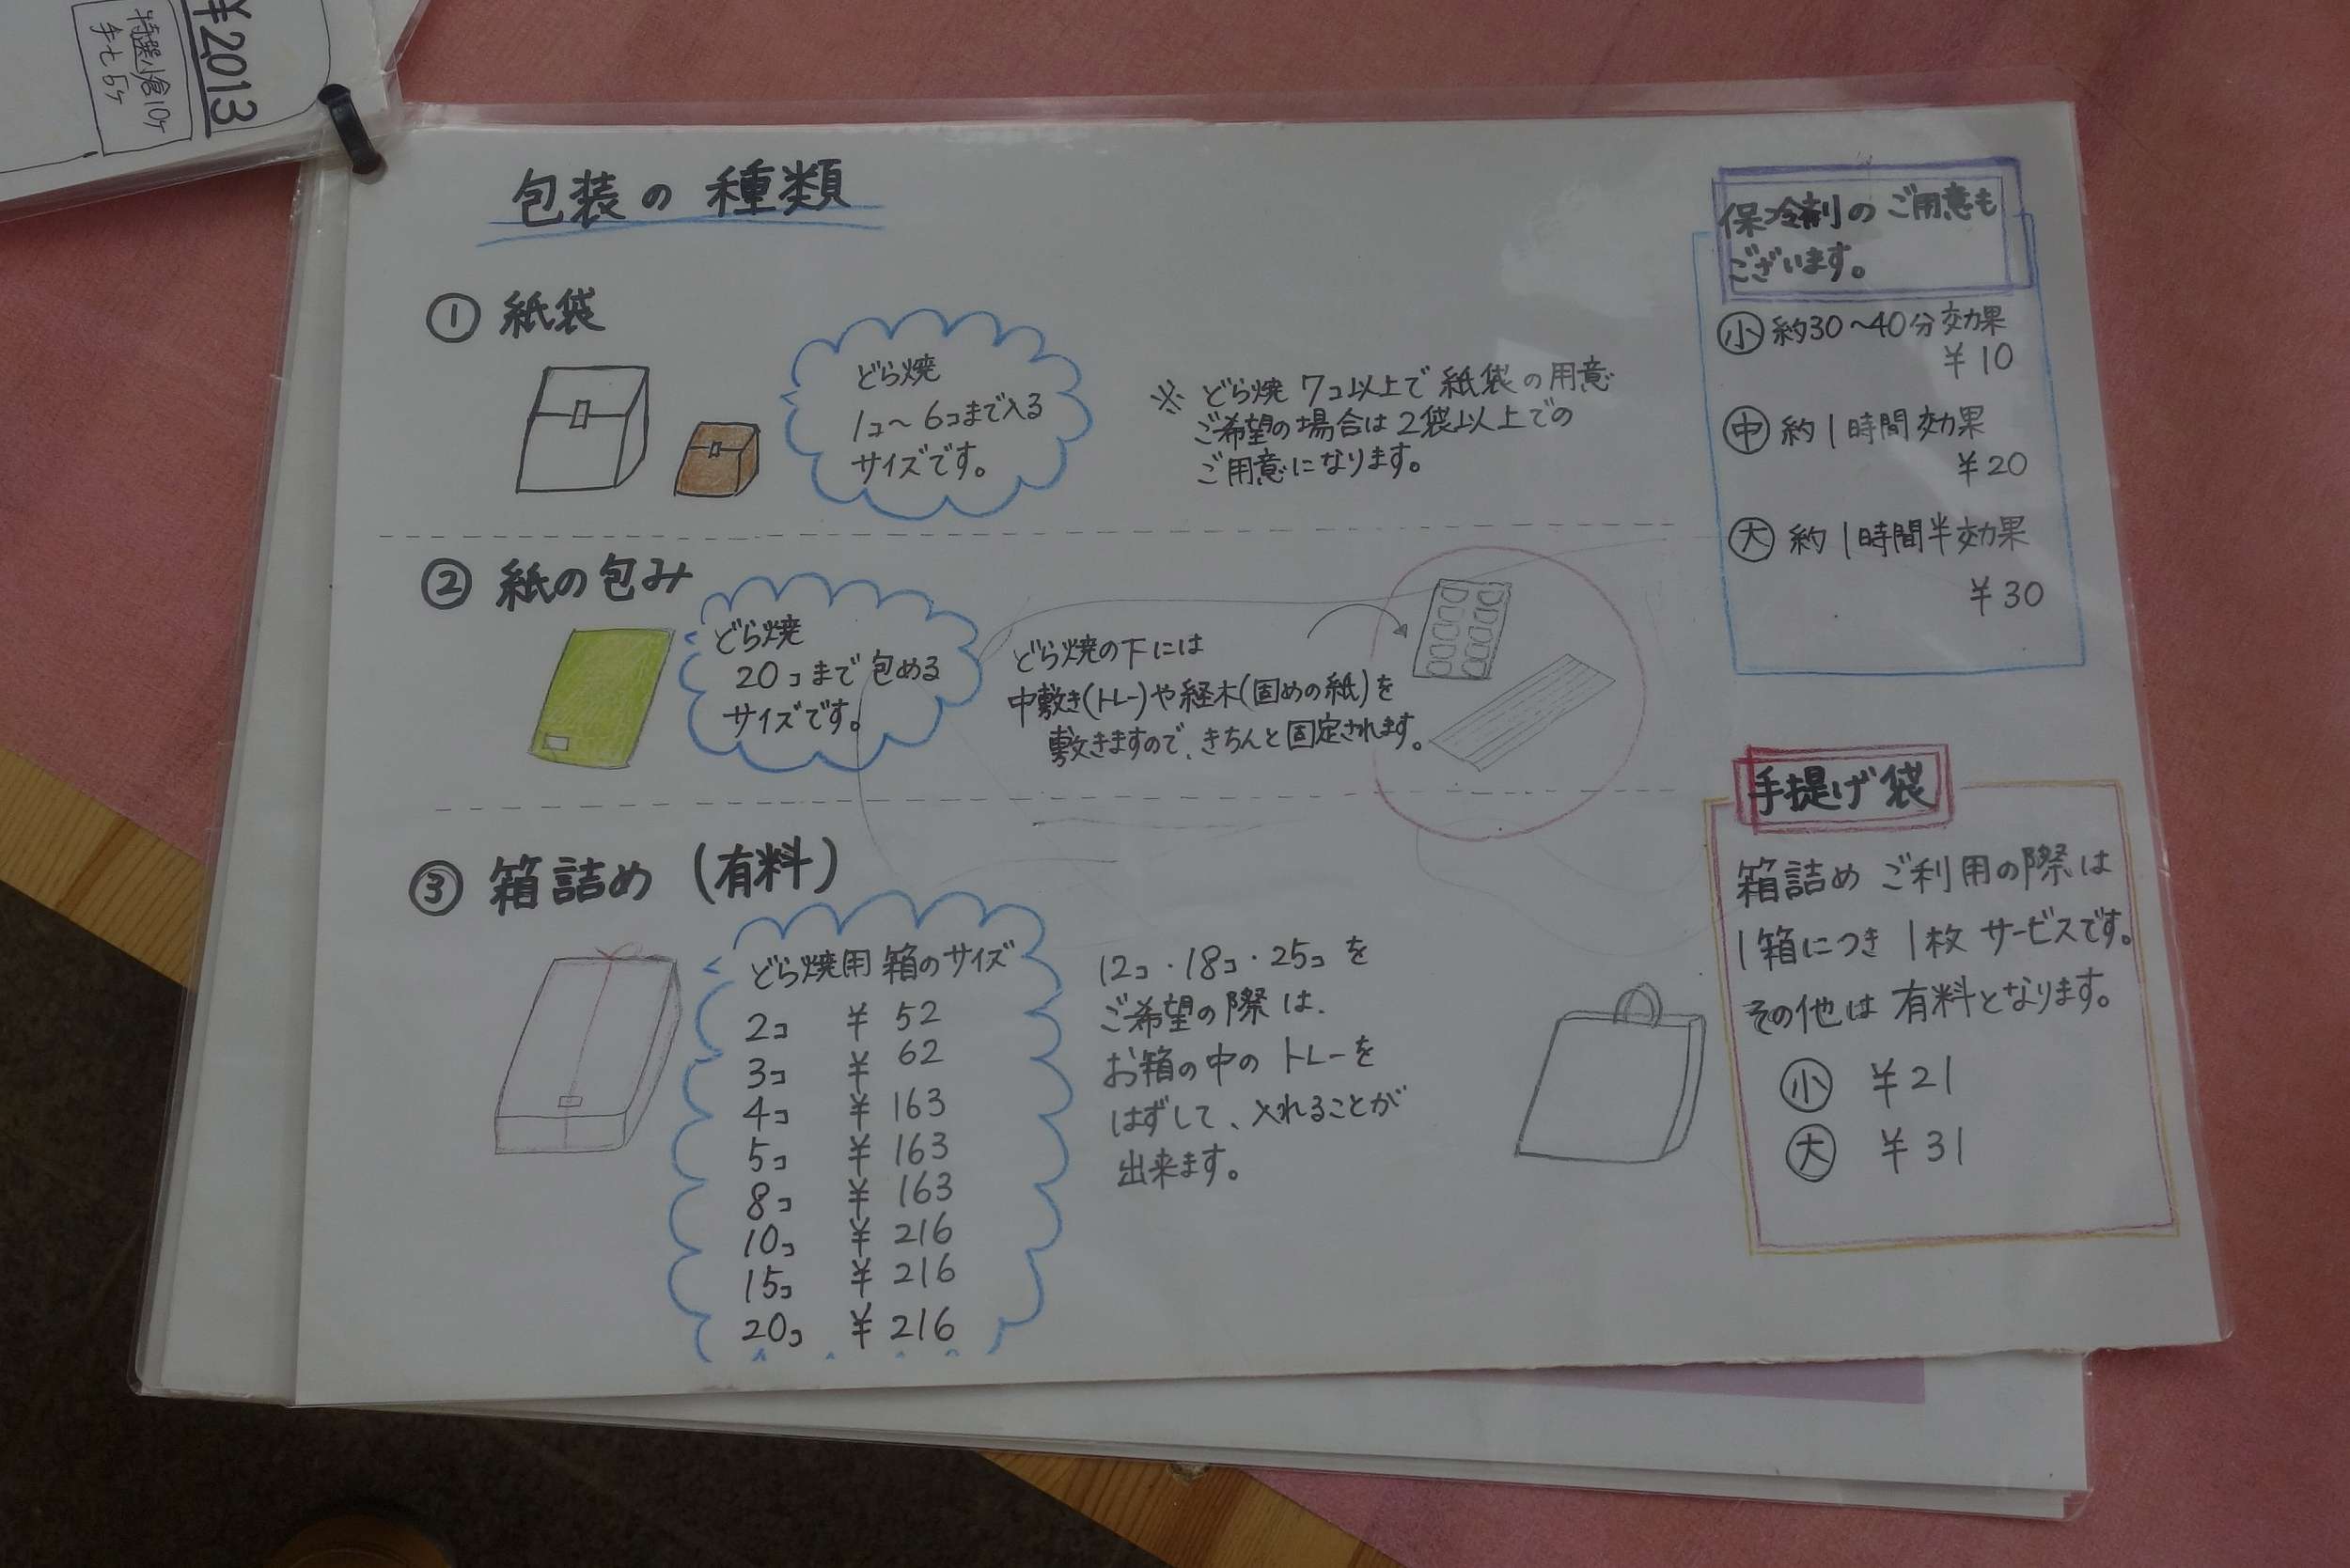 ¥2013
特選小倉10ヶ
手七5ヶ
包装の種類
① 紙袋
どら焼
1コ～6コまで入る
サイズです。
※ どら焼 7コ以上で 紙袋の用意
ご希望の場合は2袋以上での
ご用意になります。
② 紙の包み
どら焼
20コまで包める
サイズです。
どら焼の下には
中敷き(トレー)や経木(固めの紙)を
敷きますので、きちんと固定されます。
③ 箱詰め (有料)
どら焼用 箱のサイズ
2コ ¥ 52
3コ ¥ 62
4コ ¥ 163
5コ ¥ 163
8コ ¥ 163
10コ ¥ 216
15コ ¥ 216
20コ ¥ 216
12コ・18コ・25コ を
ご希望の際は、
お箱の中の トレーを
はずして、入れることが
出来ます。
保冷剤のご用意も
ございます。
小 約30～40分効果
¥10
中 約1時間効果
¥20
大 約1時間半効果
¥30
手提げ袋
箱詰め ご利用の際は
1箱につき 1枚 サービスです。
その他は 有料となります。
小 ¥21
大 ¥31